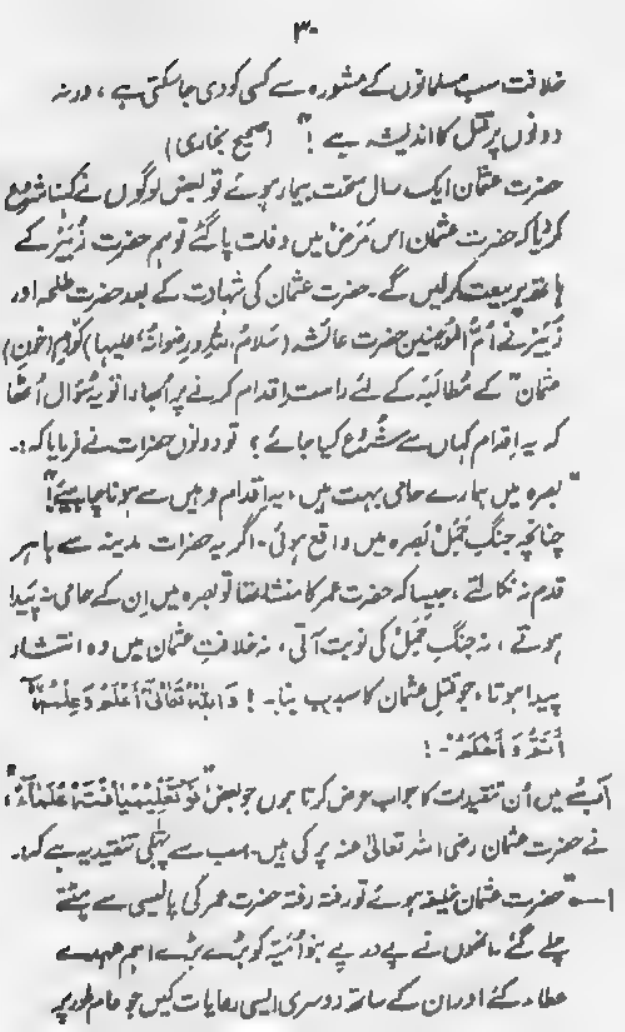 ۳۰
خلافت سب مسلمانوں کے مشورہ سے کسی کو دی جا سکتی ہے ، ورنہ
دونوں پر قتل کا اندیشہ ہے !" (صحیح بخاری)
حضرت عثمان ایک سال سخت بیمار ہوئے تو بعض لوگوں نے کہنا شروع
کر دیا کہ حضرت عثمان اس مَرَض میں وفات پا گئے تو ہم حضرت زُبَیْر کے
ہاتھ پر بیعت کر لیں گے ۔ حضرت عثمان کی شہادت کے بعد حضرت طلحہ اور
زُبَیْر نے اُمُّ المؤمنین حضرت عائشہ (سَلامُ اللہِ ورِضوانُہٗ علیہا) کو اہم (خونِ)
عثمان" کے مُطالَبَہ کے لئے راست اِقدام کرنے پر اُبھارا تو یہ سُوَال اُٹھا
کہ یہ اِقدام کہاں سے شُرُوع کیا جائے ؟ تو دونوں حضرات نے فرمایا کہ :۔
"بصرہ میں ہمارے حامی بہت ہیں ، یہ اِقدام وہیں سے ہونا چاہیئے !"
چنانچہ جنگِ جَمَلْ بَصرہ میں واقع ہوئی ۔ اگر یہ حضرات مدینہ سے باہر
قدم نہ نکالتے ، جیسا کہ حضرت عمر کا منشا تھا تو بصرہ میں اِن کے حامی نہ پَیدا
ہوتے ، نہ جنگِ جَمَلْ کی نوبت آتی ، نہ خلافتِ عثمان میں وہ انتشار
پیدا ہوتا ، جو قتلِ عثمان کا سبب بنا ۔ ! وَاللہُ تَعَالٰی اَعْلَمُ وَعِلْمُہٗ
اَتَمُّ وَ اَحْکَمُ ۔ !
اَب میں اُن تنقیدات کا جواب عرض کرتا ہوں جو بعض "نَو تَعْلِیْم یَافْتَہ عُلَمَاء" ،
نے حضرت عثمان رضی اللہ تعالیٰ عنہ پر کی ہیں ۔ سب سے پہلی تنقید یہ ہے کہ :۔
۱ــــ "حضرت عثمان خلیفہ ہوئے تو رفتہ رفتہ حضرت عمر کی پالیسی سے ہٹتے
چلے گئے ، انھوں نے پے در پے بنو اُمَیَّہ کو بڑے بڑے اہم عہدے
عطاء کئے اور ان کے ساتھ دوسری ایسی رعایات کیں جو عام طور پر